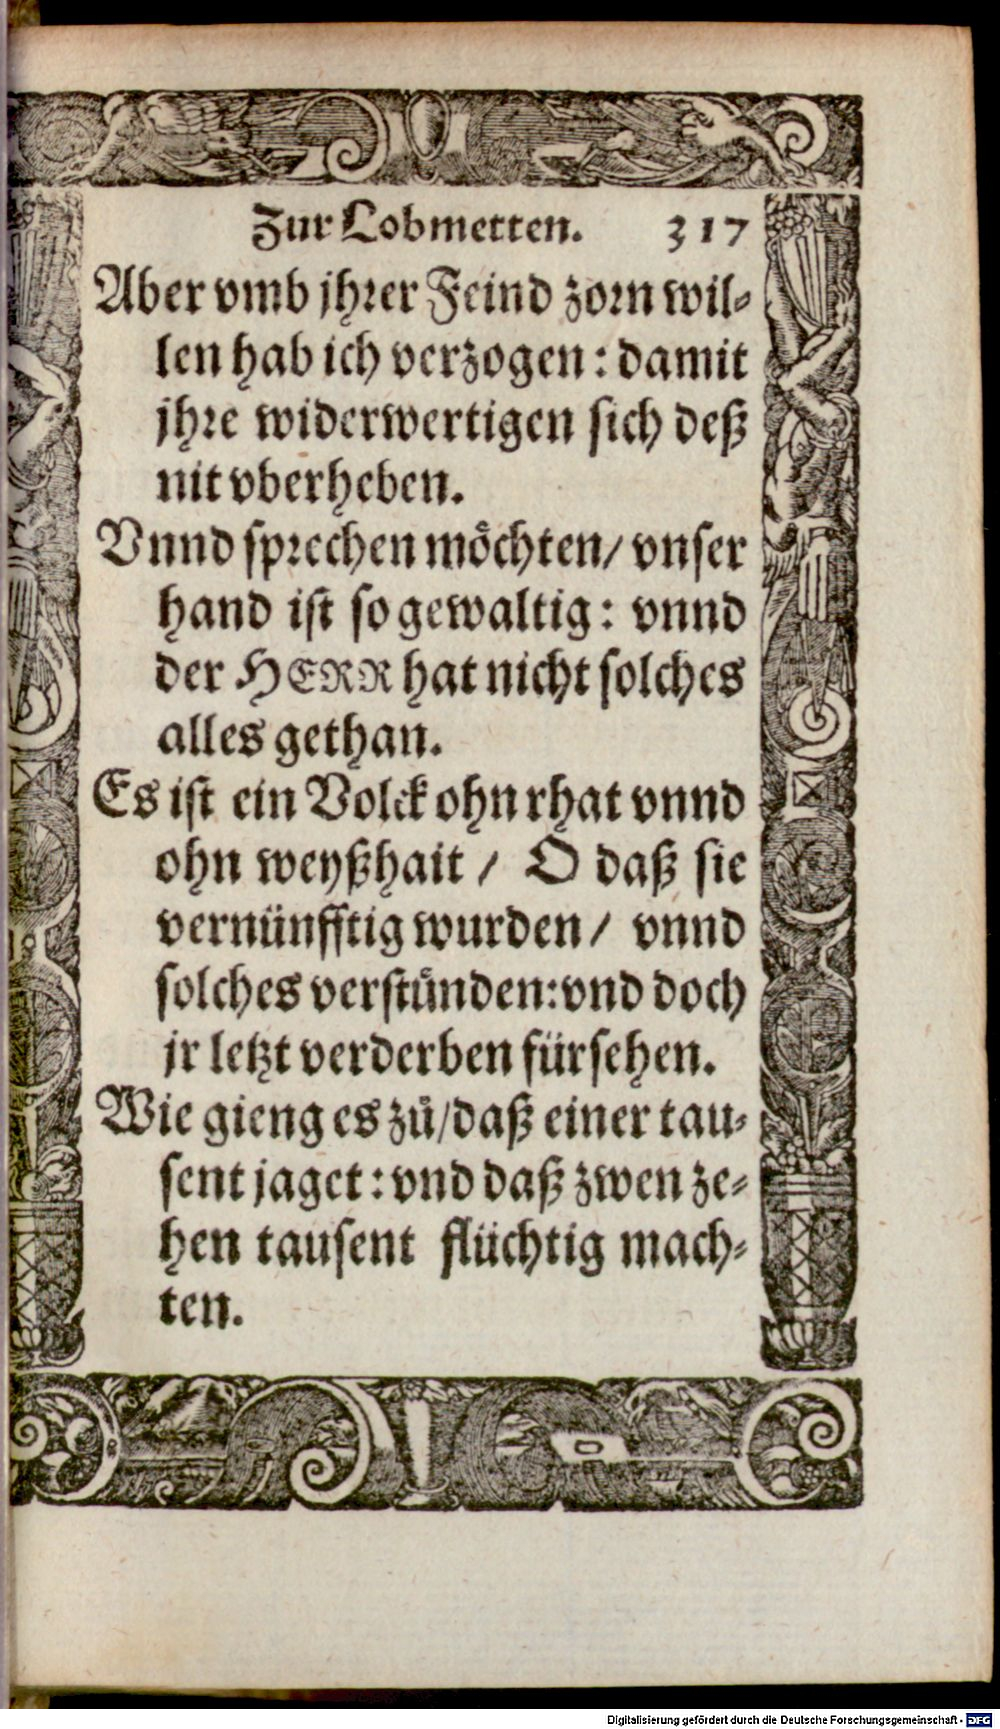 Zur Lobmetten. 317
Aber vmb jhrer Feind zorn wil-
len hab ich verzogen: damit
jhre widerwertigen sich deß
nit vberheben.
Vnnd sprechen möchten/ vnser
hand ist so gewaltig: vnnd
der HERR hat nicht solches
alles gethan.
Es ist ein Volck ohn rhat vnnd
ohn weyßhait / O daß sie
vernünfftig wurden / vnnd
solches verstünden: vnd doch
jr letzt verderben fürsehen.
Wie gieng es zů/ daß einer tau-
sent jaget: vnd daß zwen ze-
hen tausent flüchtig mach-
ten.
Digitalisierung gefördert durch die Deutsche Forschungsgemeinschaft - DFG